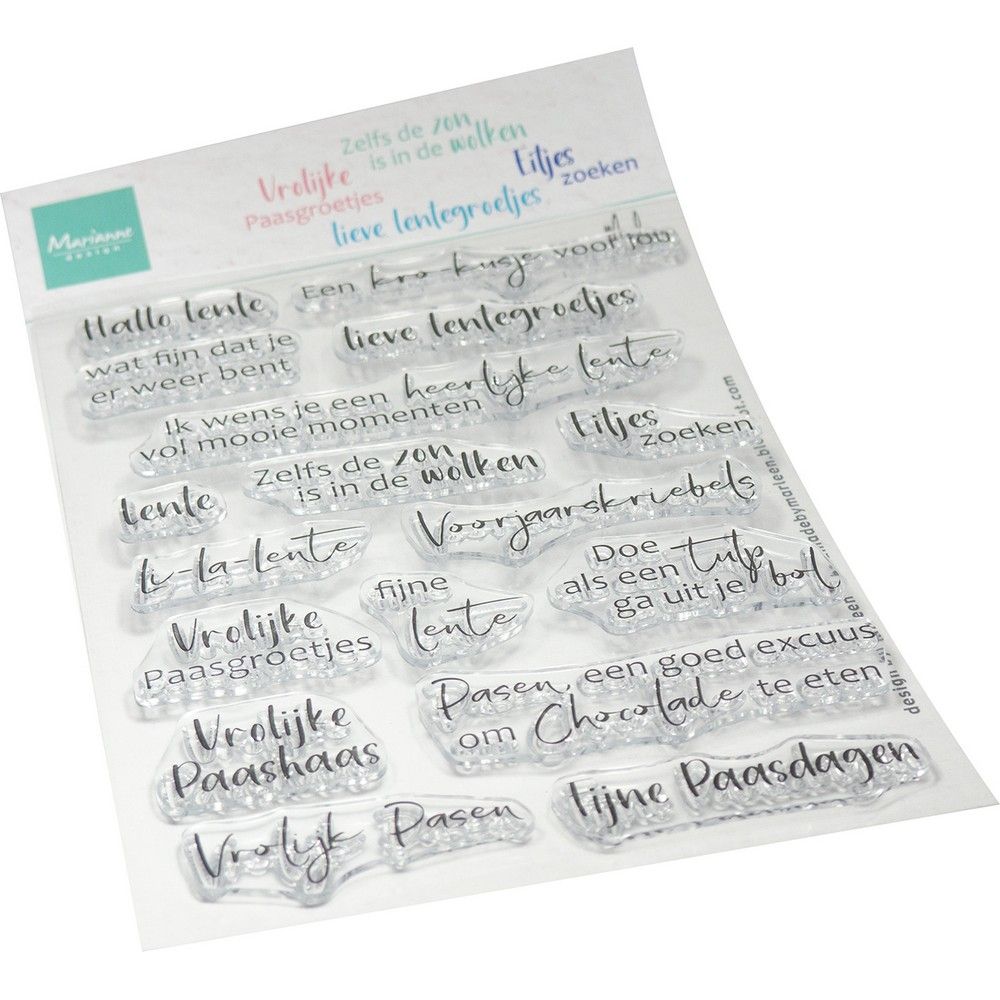 Zelfs de zon
is in de wolken
Vrolijke
Paasgroetjes
Eitjes
zoeken
lieve lentegroetjes
Marianne
DESIGN
Een kro-kusje voor jou
Hallo lente
wat fijn dat je
er weer bent
lieve lentegroetjes
Ik wens je een heerlijke lente
vol mooie momenten
Eitjes
zoeken
Zelfs de zon
is in de wolken
lente
Voorjaarskriebels
li-la-lente
fijne
lente
Doe
als een tulp
ga uit je bol
Vrolijke
Paasgroetjes
Pasen, een goed excuus
om Chocolade te eten
Vrolijke
Paashaas
Fijne Paasdagen
Vrolijk Pasen
design